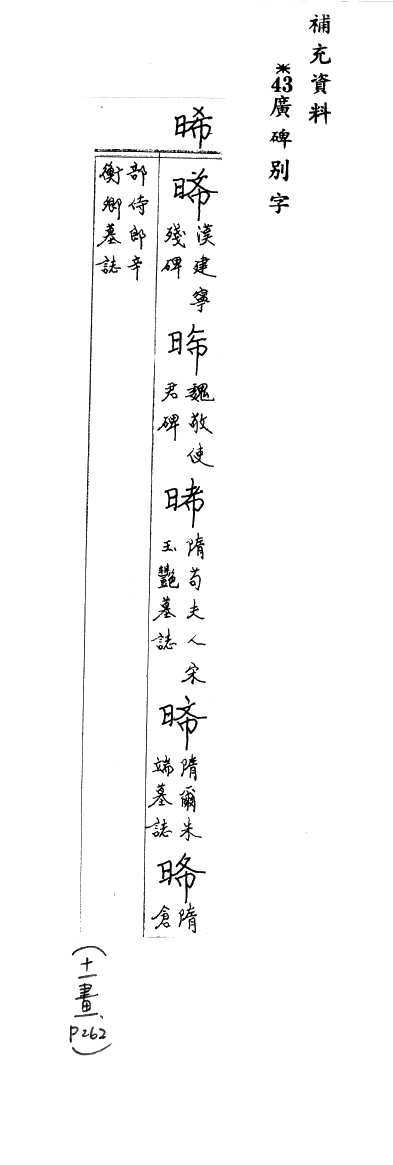 補充資料
※43廣碑別字
晞
晞
漢建寧
殘碑
晞
魏敬使
君碑
晞
隋苟夫人宋
玉豔墓誌
晞
隋爾朱
端墓誌
晞
隋
倉
部侍郎辛
衡卿墓誌
(十一畫、P262)